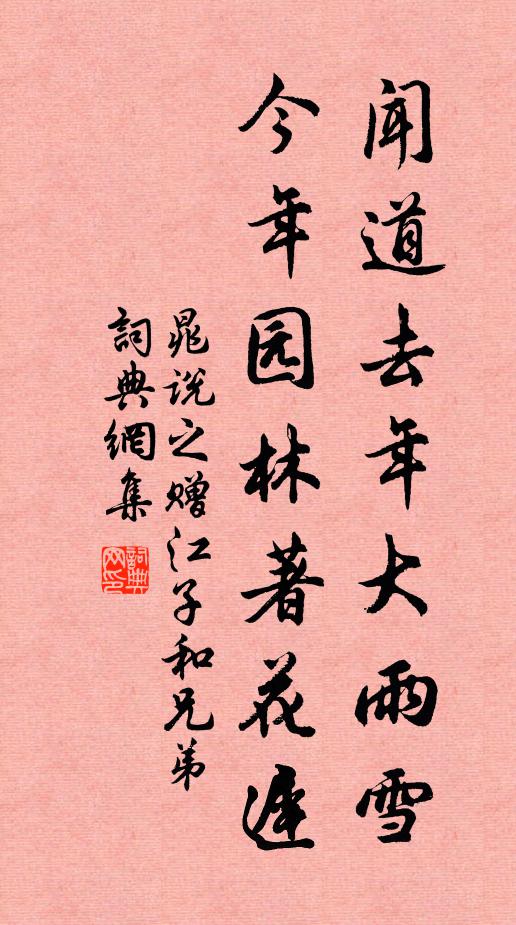 闻道去年大雨雪
今年园林著花遅
晁说之赠江子和兄弟
詞典網集
詞典网印